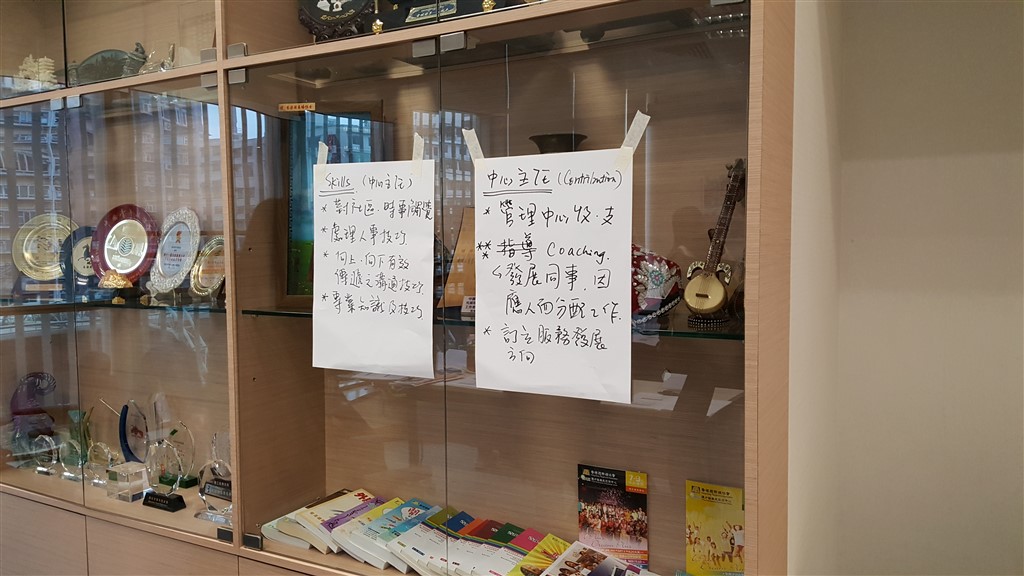 Skills (中心主任)
* 對社區、時事觸覺
* 處理人事技巧
* 向上、向下有效
傳遞之溝通技巧
* 專業知識及技巧
中心主任 (Contribution)
* 管理中心收、支
** 指導 Coaching.
↳ 發展同事、因
應人而分配工作.
* 訂立服務發展
方向